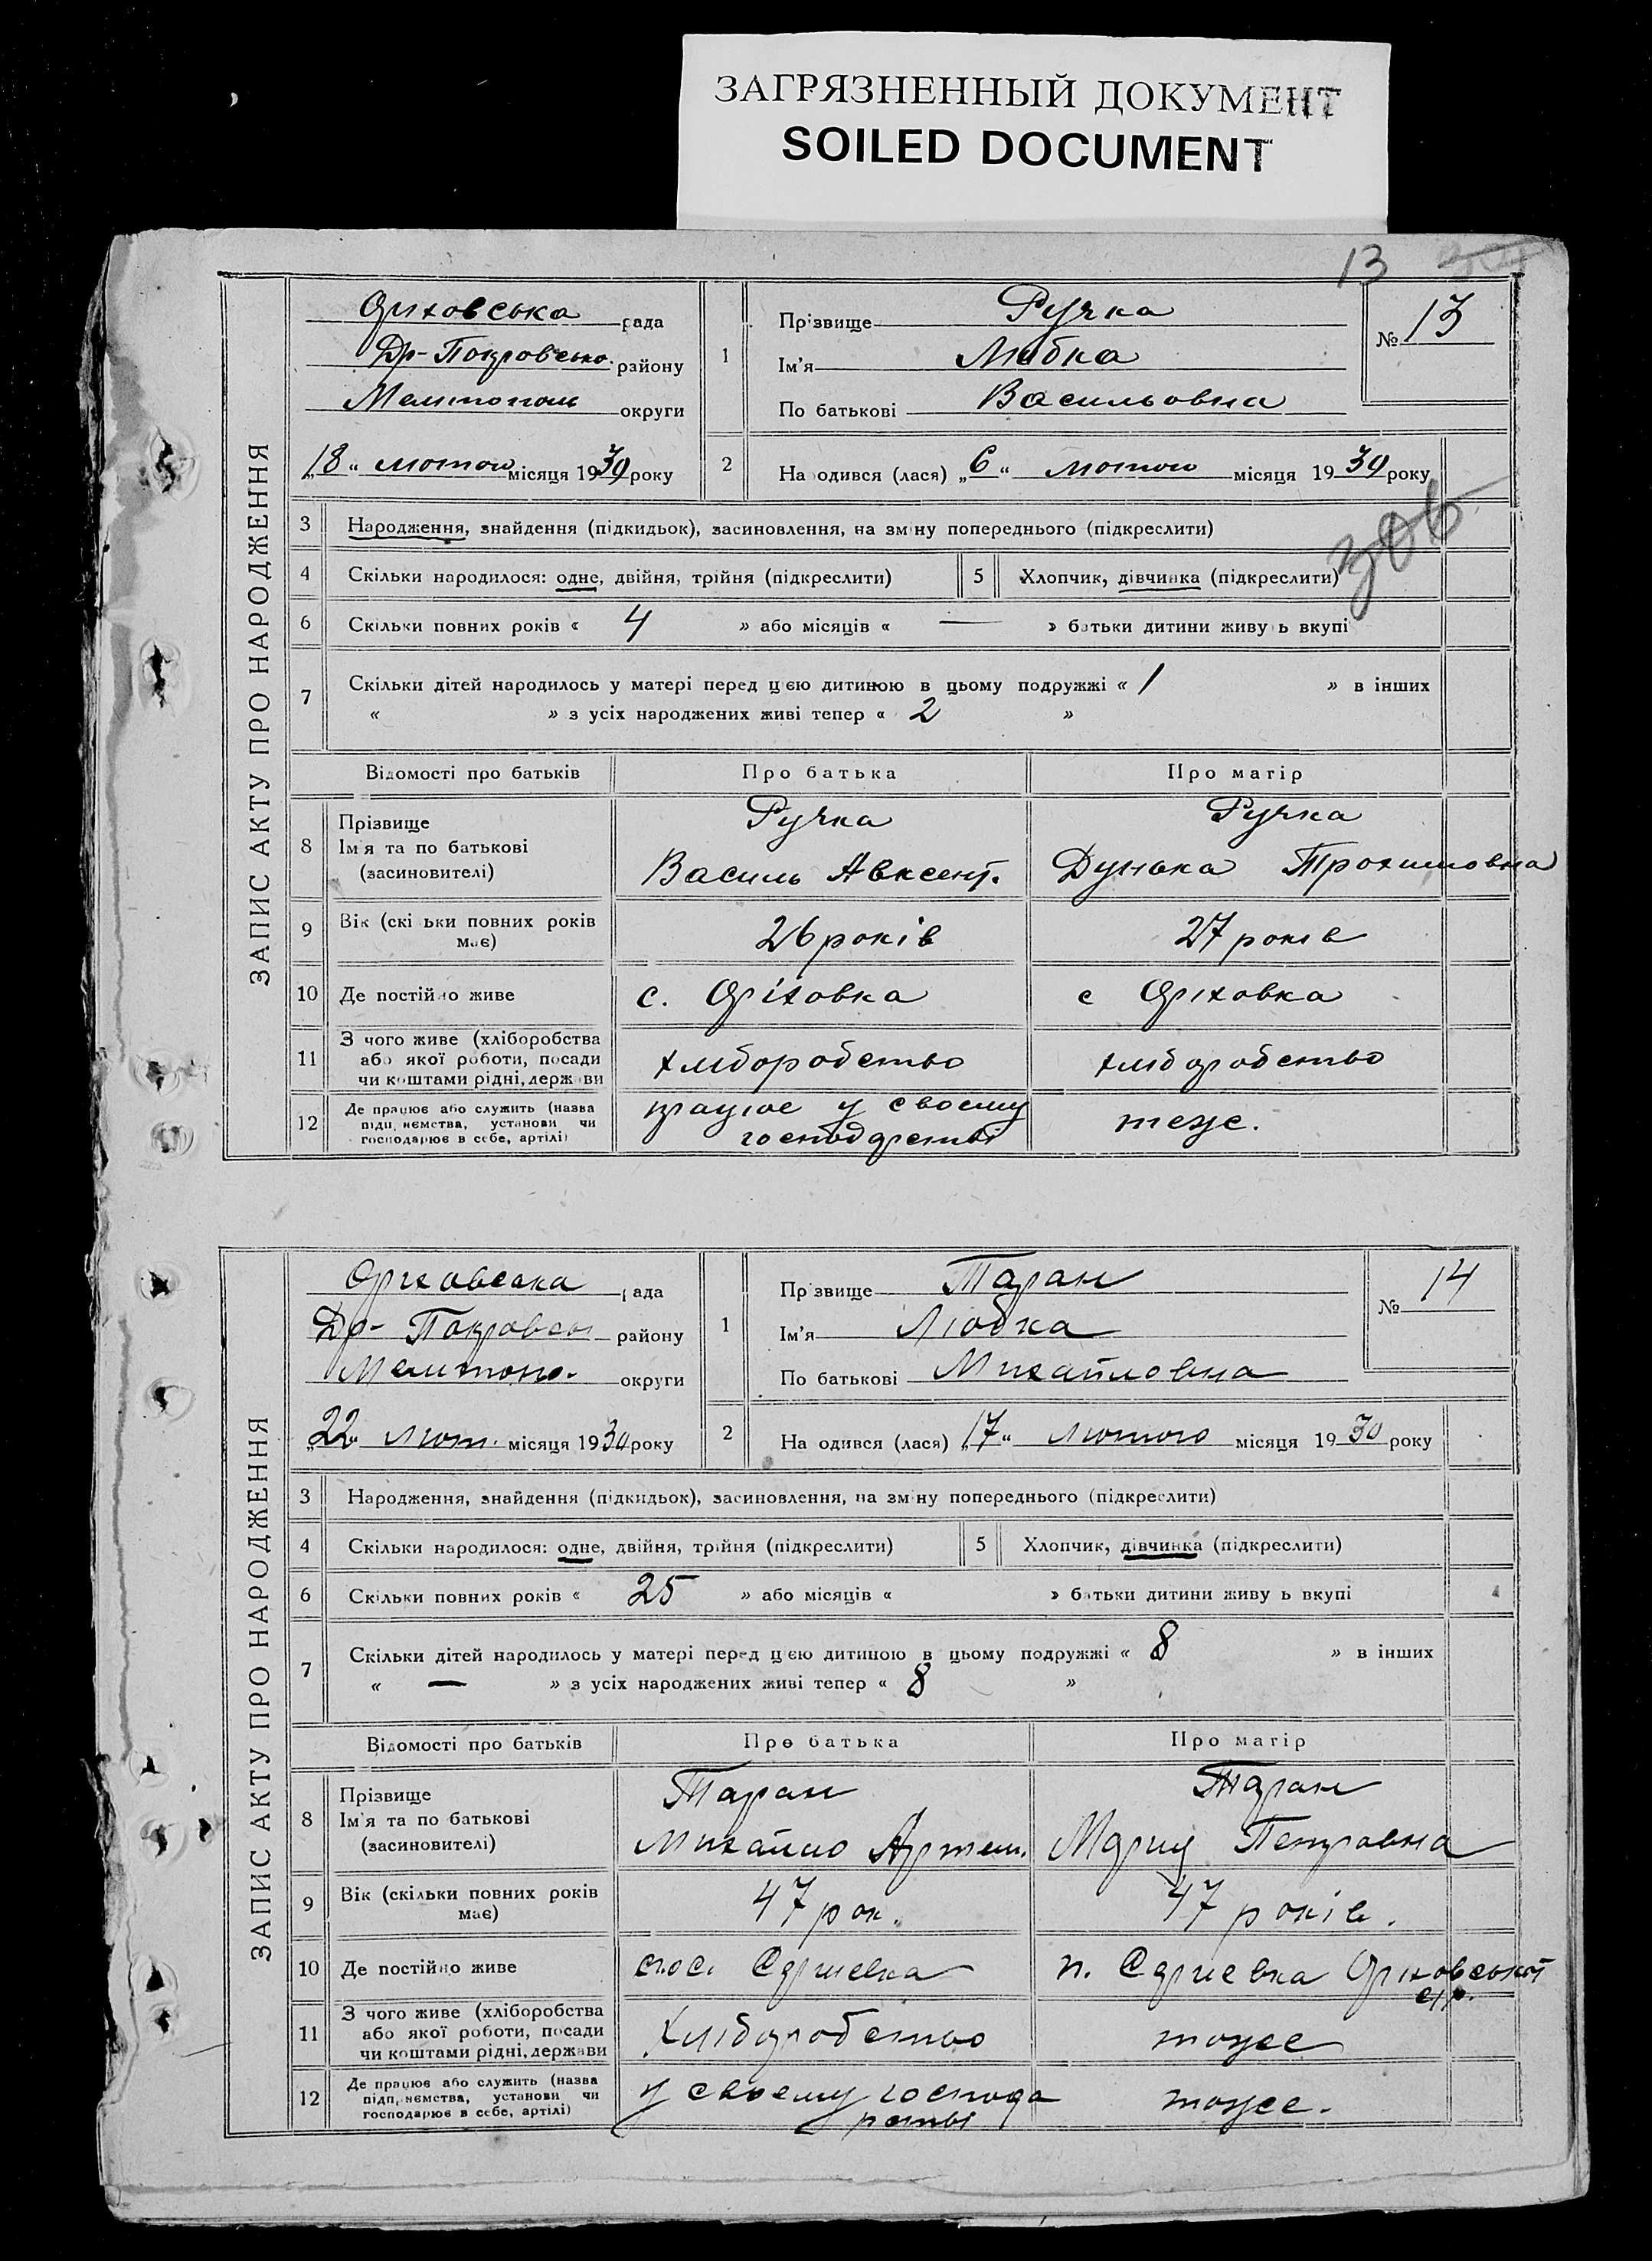 ЗАГРЯЗНЕННЫЙ ДОКУМЕНТ
SOILED DOCUMENT
13
ЗАПИС АКТУ ПРО НАРОДЖЕННЯ
Оріховська рада
Др-Покровсько. району
Мелитополь округи
„18“ лютого місяця 1930 року
1
Прізвище Ручка
Ім'я Любка
По батькові Васильовна
№ 13
2
Народився (лася) „6“ лютого місяця 1930 року
306
3 Народження, знайдення (підкидьок), засиновлення, на зміну попереднього (підкреслити)
4 Скільки народилося: одне, двійня, трійня (підкреслити) 5 Хлопчик, дівчинка (підкреслити)
6 Скільки повних років « 4 » або місяців « — » батьки дитини живуть вкупі
7 Скільки дітей народилось у матері перед цією дитиною в цьому подружжі « 1 » в інших
« » з усіх народжених живі тепер « 2 »
Відомості про батьків Про батька Про матір
8 Прізвище Ручка Ручка
Ім'я та по батькові
(засиновителі) Василь Авксент. Дунька Трохимовна
9 Вік (скільки повних років має) 26 років 27 років
10 Де постійно живе с. Оріховка с Оріховка
11 З чого живе (хліборобства
або якої роботи, посади
чи коштами рідні, держави хліборобство хліборобство
12 Де працює або служить (назва
підприємства, установи чи
господарює в себе, артілі) працює у своєму
господарстві теже.
ЗАПИС АКТУ ПРО НАРОДЖЕННЯ
Оріховська рада
Др- Покровськ району
Мелитопо. округи
„22“ лют. місяця 1930 року
1
Прізвище Таран
Ім'я Любка
По батькові Михайловна
№ 14
2
Народився (лася) „17“ Лютого місяця 1930 року
3 Народження, знайдення (підкидьок), засиновлення, на зміну попереднього (підкреслити)
4 Скільки народилося: одне, двійня, трійня (підкреслити) 5 Хлопчик, дівчинка (підкреслити)
6 Скільки повних років « 25 » або місяців « » батьки дитини живуть вкупі
7 Скільки дітей народилось у матері перед цією дитиною в цьому подружжі « 8 » в інших
« — » з усіх народжених живі тепер « 8 »
Відомості про батьків Про батька Про матір
8 Прізвище Таран Таран
Ім'я та по батькові
(засиновителі) Михайло Артем. Мария Петровна
9 Вік (скільки повних років має) 47 рок. 47 років.
10 Де постійно живе пос. п. Оріховської
с/р.
11 З чого живе (хліборобства
або якої роботи, посади
чи коштами рідні, держави Хліборобство тоже
12 Де працює або служить (назва
підприємства, установи чи
господарює в себе, артілі) у своєму господа
рстві тоже.